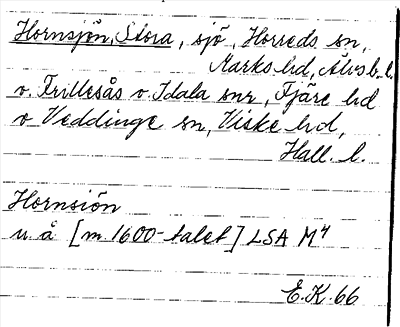 Hornsjön, Stora, sjö, Horreds sn,
Marks hd, Älvsb. l.
o. Frillesås o. Idala snr, Fjäre hd
o Veddinge sn, Viske hd,
Hall. l.
Hornsiön
u. å [m 1600-talet] LSA M4
E.K. 66